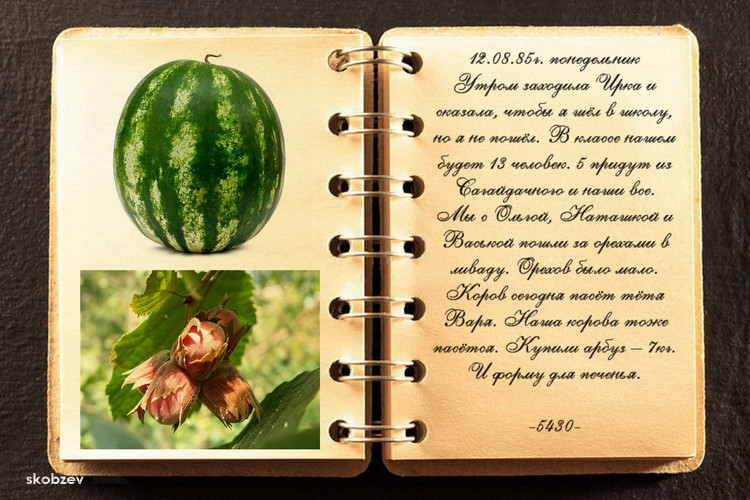 12.08.85г. понедельник
Утром заходила Ирка и
сказала, чтобы я шёл в школу,
но я не пошёл. В классе нашем
будет 13 человек. 5 придут из
Сагайдачного и наши все.
Мы с Ольгой, Наташкой и
Васькой пошли за орехами в
ливаду. Орехов было мало.
Коров сегодня пасёт тётя
Варя. Наша корова тоже
пасётся. Купили арбуз – 7кг.
И форму для печенья.
-5430-
skobzev